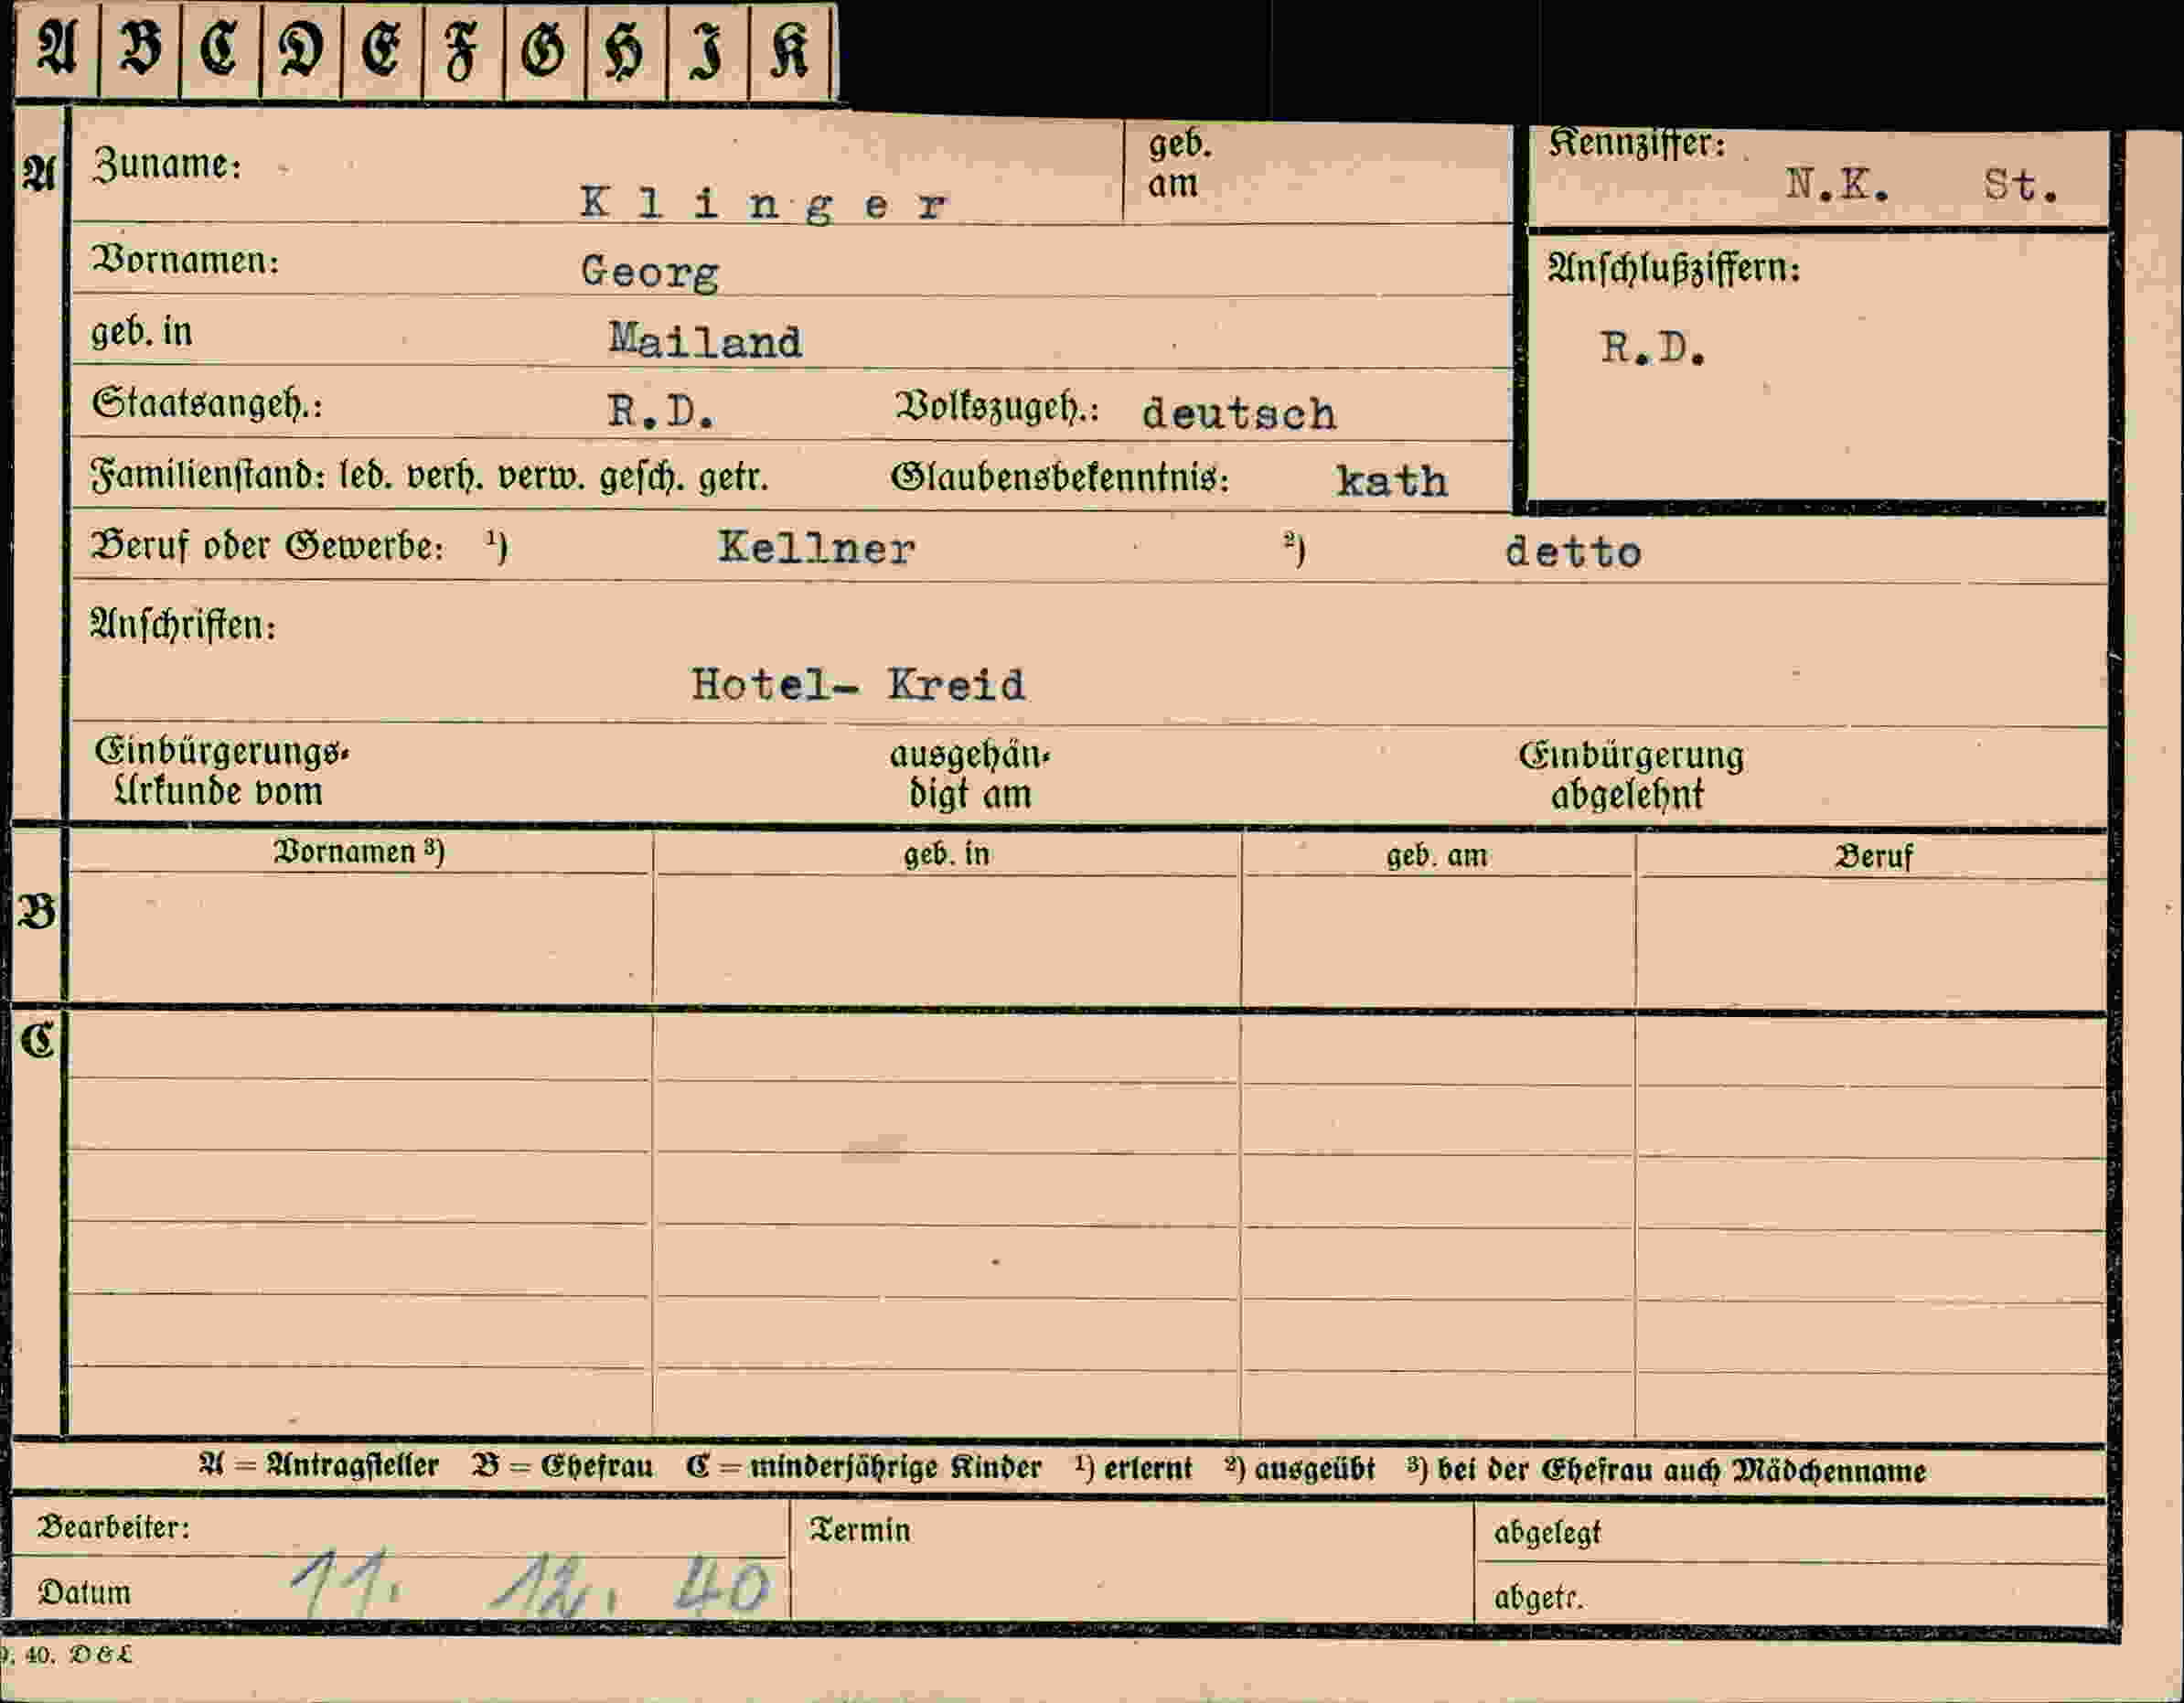 A B C D E F G H I K
A Zuname: Klinger geb. am
Kennziffer: N.K. St.
Vornamen: Georg
Anschlußziffern:
geb. in Mailand
R.D.
Staatsangeh.: R.D. Volkszugeh.: deutsch
Familienstand: led. verh. verw. gesch. getr. Glaubensbekenntnis: kath
Beruf oder Gewerbe: ¹) Kellner ²) detto
Anschriften:
Hotel- Kreid
Einbürgerungs- ausgehän- Einbürgerung
Urkunde vom digt am abgelehnt
Vornamen ³) geb. in geb. am Beruf
B
C
A = Antragsteller B = Ehefrau C = minderjährige Kinder ¹) erlernt ²) ausgeübt ³) bei der Ehefrau auch Mädchenname
Bearbeiter: Termin abgelegt
Datum 11. 12. 40 abgetr.
40. D&L